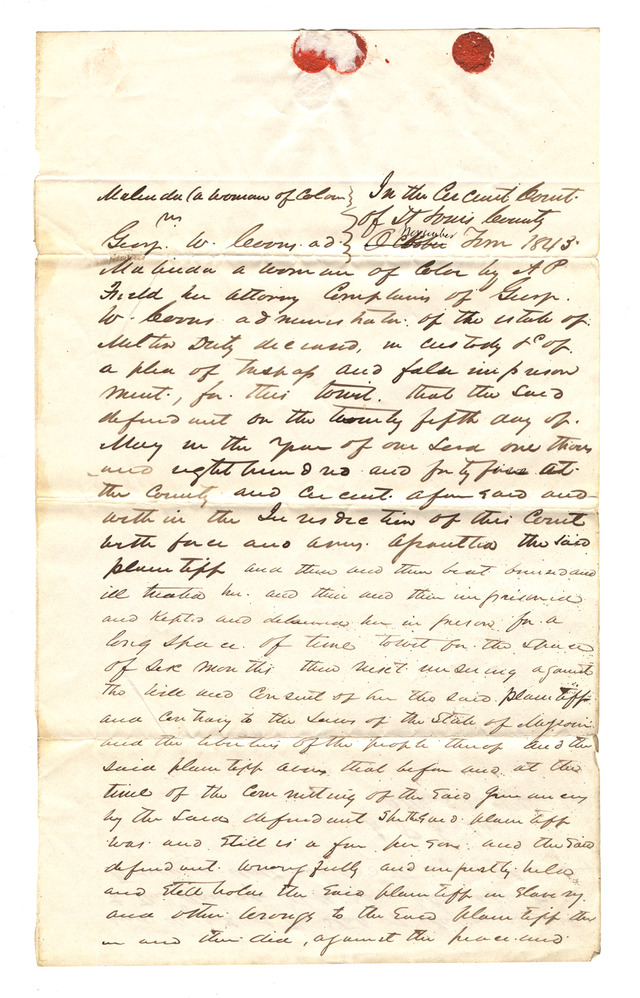 Malinda (a woman of Color }
vs
Geo. W. Coons ad. }
In the Circuit Court
of St Louis County
November
October Term 1843
Malinda a woman of Color by A P
Field her attorney Complains of George
W. Coons administrator of the estate of
Milton Duty deceased, in custody &c of
a plea of trespass and false imprison
ment, for this towit. that the said
defendant on the twenty fifth day of
May in the year of our Lord one thous
and eight hundred and forty at
the County and Circuit aforesaid and
with in the Jurisdiction of this Court
with force and arms assaulted the said
plaintiff and then and then beat bruised and
ill treated her and then and then imprisoned
and kept and detained her in prison for a
long space of time towit for the space
of six months then next ensuing against
the will and consent of her the said plaintiff
and contrary to the laws of the State of Missouri
and the liberties of the people thereof and the
said plaintiff avers that before and at the
time of the committing of the said grievances
by the said defendant she the said plaintiff
was and still is a free person and the said
defendant wrongfully and unjustly held
and still holds the said plaintiff in Slavery
and other wrongs to the said plaintiff then
in and then did, against the peace and